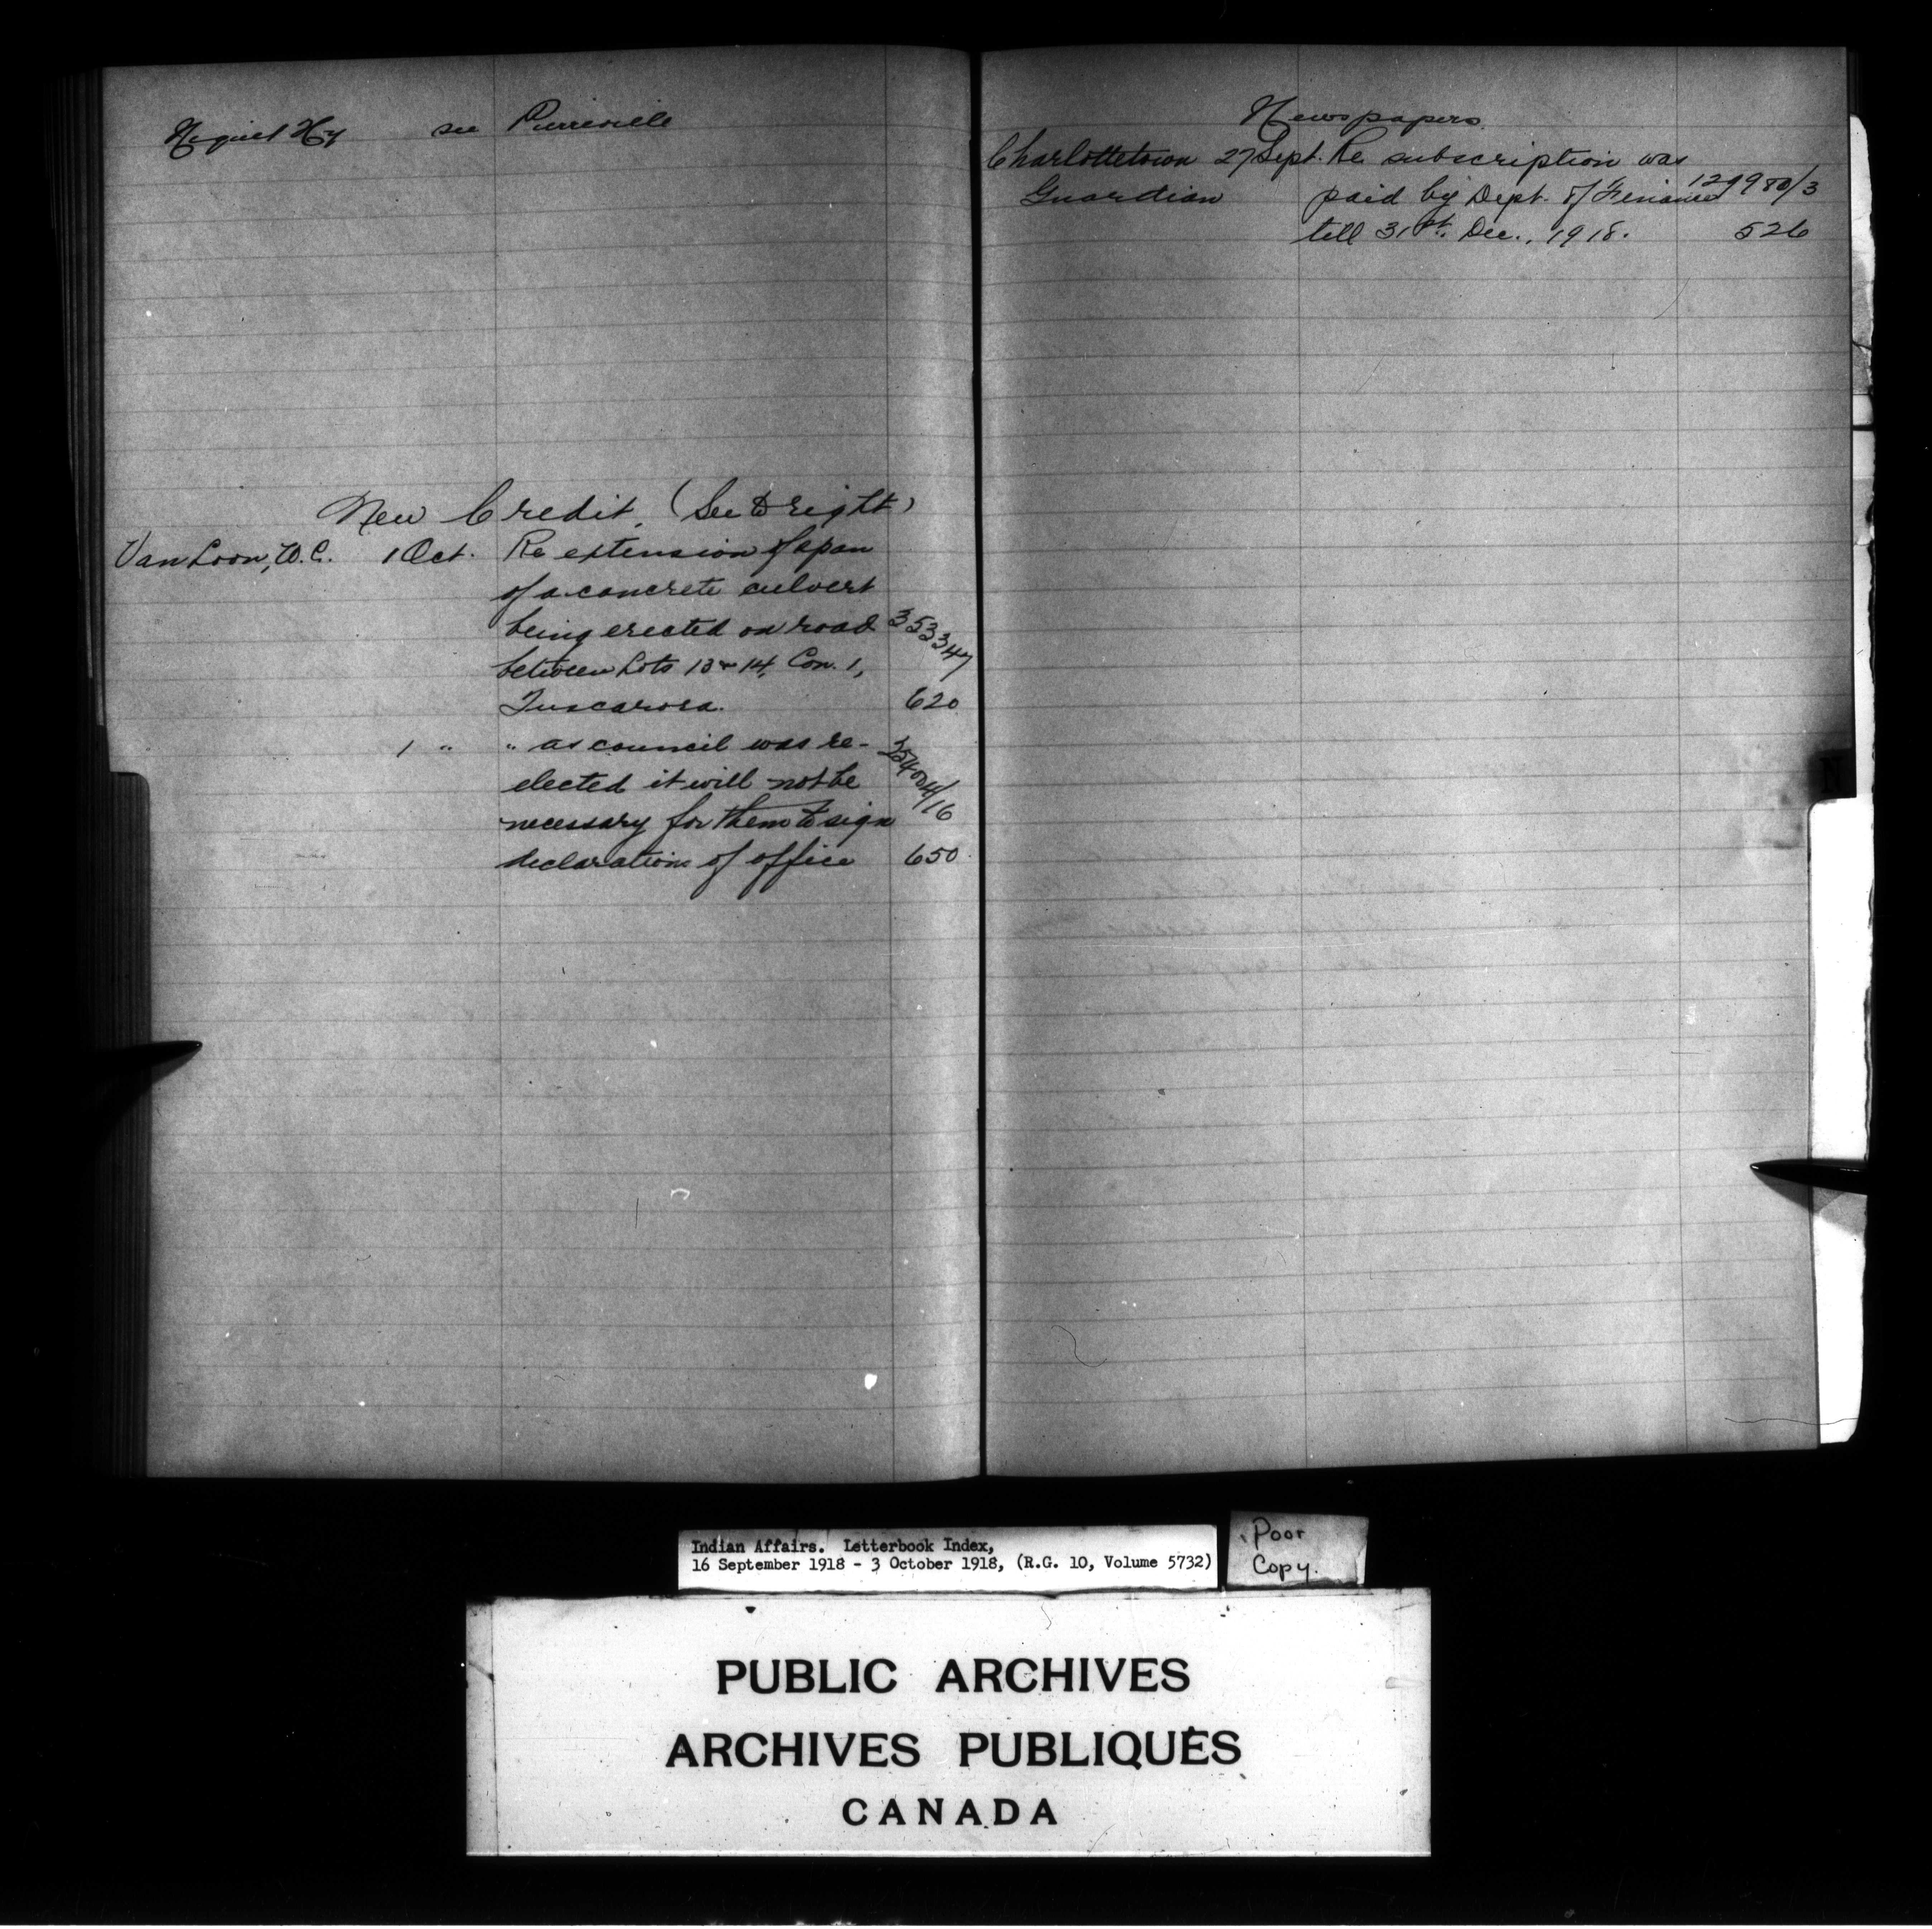 see Pierreville
New Credit. (See to right)
Van Loon, W.C. 1 Oct. Re extension of span
of a concrete culvert
being erected on road 353347
between Lots 13 & 14, Con. 1,
Tuscarora. 620
1 " " as council was re-
elected it will not be 354004/16
necessary for them to sign
declarations of office 650
Newspapers
Charlottetown 27 Sept. Re subscription was
Guardian paid by Dept. of Finance
till 31st. Dec., 1918. 526
N
Indian Affairs. Letterbook Index,
16 September 1918 - 3 October 1918, (R.G. 10, Volume 5732)
Poor
Copy.
PUBLIC ARCHIVES
ARCHIVES PUBLIQUES
CANADA